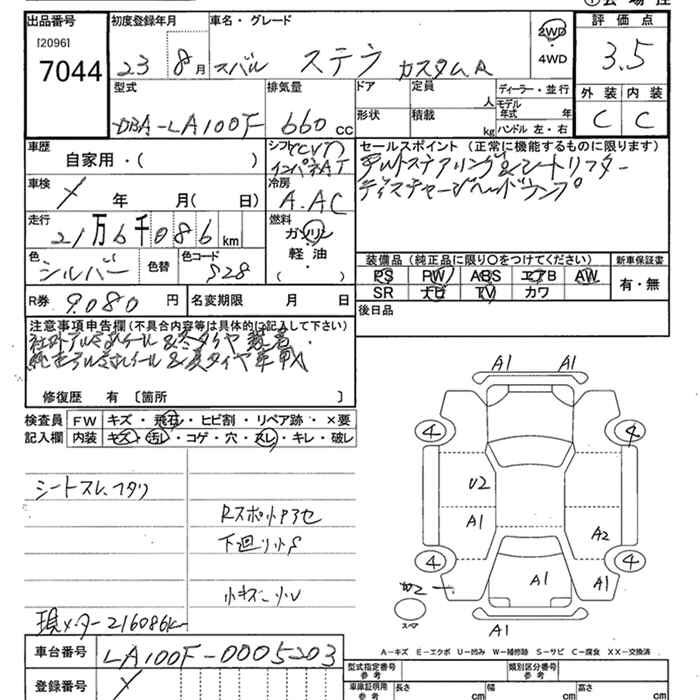 出品番号
[2096]
7044
初度登録年月
23 8月
車名・グレード
スバル ステラ カスタムR
2WD
・
4WD
評価点
3.5
外装 内装
C C
型式
DBA-LA100F
排気量
660 cc
ドア
定員
人
形状
積載
kg
ディーラー・並行
モデル年式 年
ハンドル 左・右
車歴
自家用・( )
車検
年 月( 日)
走行
21万6千086km
色
シルバー
色替
色コード
S28
R券
9.080円
名変期限 月 日
シフト(CVT)
インパネAT
冷房
A.AC
燃料
ガソリン
軽・油
( )
セールスポイント(正常に機能するものに限ります)
チルトステアリング&シートリフター
ディスチャージヘッドランプ
装備品(純正品に限り○をつけてください)
PS PW ABS エアB AW
SR ナビ TV カワ
新車保証書
有・無
後日品
注意事項申告欄(不具合内容等は具体的に記入して下さい)
社外アルミホイール&冬タイヤ装着
純正アルミホイール&夏タイヤ車載
修復歴 有〔箇所 〕
検査員記入欄
FW キズ・飛石・ヒビ割・リペア跡・×要
内装 キズ・汚レ・コゲ・穴・スレ・キレ・破レ
シートスレ、フタワ
Rスポット
下廻り小S
小キズ
現メーター216086km
A1 A1
4 4
U2
A1 A2
4 4
A1 A1
W2
スペア
A1
A-キズ E-エクボ U-凹み W-補修跡 S-サビ C-腐食 XX-交換済
車台番号
LA100F-0005203
登録番号
型式指定番号
参考
類別区分番号
参考
車庫証明用
参考
長さ cm
幅 cm
高さ cm